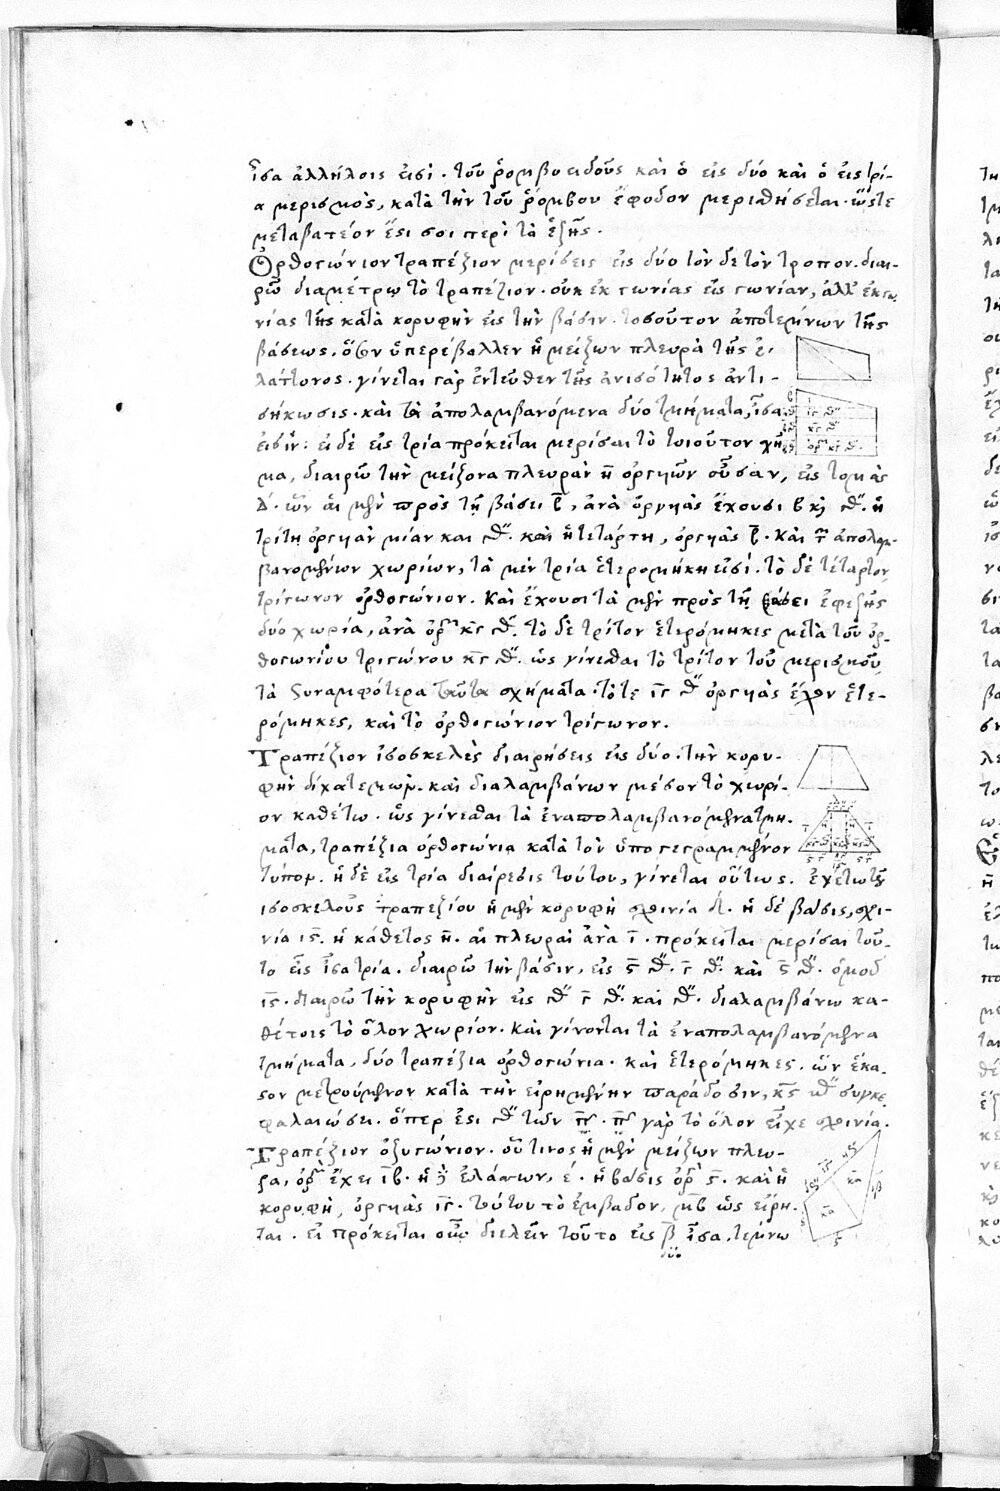 ἴσα ἀλλήλοις εἰσί. τοῦ ῥομβοειδοῦς καὶ ὁ εἰς δύο καὶ ὁ εἰς τρί-
α μερισμὸς, κατὰ τὴν τοῦ ῥόμβου ἔφοδον μερισθήσεται. ὥστε
μεταβατέον ἔστι σοι περὶ τὰ ἑξῆς.
Ὀρθογώνιον τραπέζιον μερίσεις εἰς δύο τὸν δε τὸν τροπον. διαι-
ρῶ διαμέτρῳ τὸ τραπέζιον. οὐκ ἐκ γωνίας εἰς γωνίαν, ἀλλ' ἐκ γω-
νίας τῆς κατὰ κορυφὴν εἰς τὴν βάσιν. τοσοῦτον ἀποτέμνων τῆς
βάσεως, ὅσον ὑπερέβαλλεν ἡ μείζων πλευρὰ τῆς ἐ-
λάττονος. γίνεται γὰρ ἐντεῦθεν τῆς ἀνισότητος ἀντι-
σήκωσις. καὶ τὰ ἀπολαμβανόμενα δύο τμήματα, ἴσα
εἰσίν: εἰ δὲ εἰς τρία πρόκειται μερίσαι τὸ τοιοῦτον σχῆ-
μα, διαιρῶ τὴν μείζονα πλευρὰν η̄ ὀργυιῶν οὖσαν, εἰς τομὰς
δ̄. ὧν αἱ μὲν πρὸς τῇ βάσει β̄, ἀνὰ ὀργυιὰς ἔχουσι β καὶ δ''. ἡ
τρίτη ὀργυιὰν μίαν και δ''. καὶ ἡ τετάρτη, ὀργυιὰς β̄. καὶ τῶν ἀπολαμ-
βανομένων χωρίων, τὰ μὲν τρία ἑτερομήκη εἰσί. τὸ δὲ τέταρτον
τρίγωνον ὀρθογώνιον. καὶ ἔχουσι τὰ μὲν πρὸς τῇ βάσει ἐφεξῆς
δύο χωρία, ἀνὰ ὀργυιὰς κ̄γ̄ δ''. τὸ δὲ τρίτον ἑτερόμηκες μετὰ τοῦ ὀρ-
θογωνίου τριγώνου κ̄γ̄ δ''. ὡς γίνεσθαι τὸ τρίτον τοῦ μερισμοῦ,
τὰ συναμφότερα ταῦτα σχήματα. τό τε ῑγ̄ δ'' ὀργυιὰς ἔχον ἑτε-
ρόμηκες, καὶ τὸ ὀρθογώνιον τρίγωνον.
Τραπέζιον ἰσοσκελὲς διαιρήσεις εἰς δύο. τὴν κορυ-
φὴν δίχα τεμὼν. καὶ διαλαμβάνων μέσον τὸ χωρί-
ον καθέτω. ὡς γίνεσθαι τὰ ἐναπολαμβανόμενα τμή-
ματα, τραπέζια ὀρθογώνια κατὰ τὸν ὑπογεγραμμένον
τύπον. ἡ δὲ εἰς τρία διαίρεσις τούτου, γίνεται οὕτως. ἐχέτω τοῦ
ἰσοσκελοῦς τραπεζίου ἡ μὲν κορυφὴ σχοινία δ̄. ἡ δὲ βάσις, σχοι-
νία ῑς̄. ἡ κάθετος η̄. αἱ πλευραὶ ἀνὰ ῑ. πρόκειται μερίσαι τοῦ-
το εἰς ἴσα τρία. διαιρῶ τὴν βάσιν, εἰς ς̄ δ''. γ̄ δ''. καὶ ς̄ δ''. ὁμοῦ
ῑς̄. διαιρῶ τὴν κορυφὴν εἰς δ'' γ̄ δ''. καὶ δ''. διαλαμβάνω κα-
θέτοις τὸ ὅλον χωρίον. καὶ γίνονται τὰ ἐναπολαμβανόμενα
τμήματα, δύο τραπέζια ὀρθογώνια. καὶ ἑτερόμηκες. ὧν ἕκα-
στον μετρούμενον κατὰ τὴν εἰρημένην παράδοσιν, κ̄ς̄ ω'' συγκε-
φαλαιώσει. ὅπερ ἐστι γ'' τῶν π̄. π̄ γαρ τὸ ὅλον εἶχε σχοινία.
Τραπέζιον ὀξυγώνιον. οὗτινος ἡ μὲν μείζων πλευ-
ρα, ὀργυιὰς ἔχει ῑβ̄. ἡ δ' ἐλάττων, ε̄. ἡ βάσις ὀργυιὰς ς̄. καὶ ἡ
κορυφὴ, ὀργυιὰς ῑγ̄. τούτου τὸ ἐμβαδον, μ̄β̄ ὡς εἴρη-
ται. εἰ πρόκειται οὖν διελεῖν τοῦτο εἰς β̄ ἴσα, τέμνω
δύο